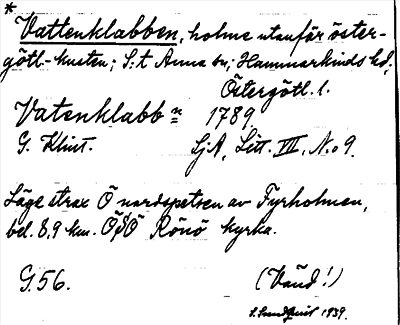 *
Vattenklabben, holme utanför öster-
götl.-kusten; S:t Anna sn; Hammarkinds hd;
Östergötl. l.
Vatenklabbn 1789.
G. Klint. SjA, Litt. VII, No 9.
Läge strax Ö nordspetsen av Fyrholmen,
bel. 8,9 km. ÖSÖ Rönö kyrka.
G. 56. (Vänd!)
S. Sundquist 1939.